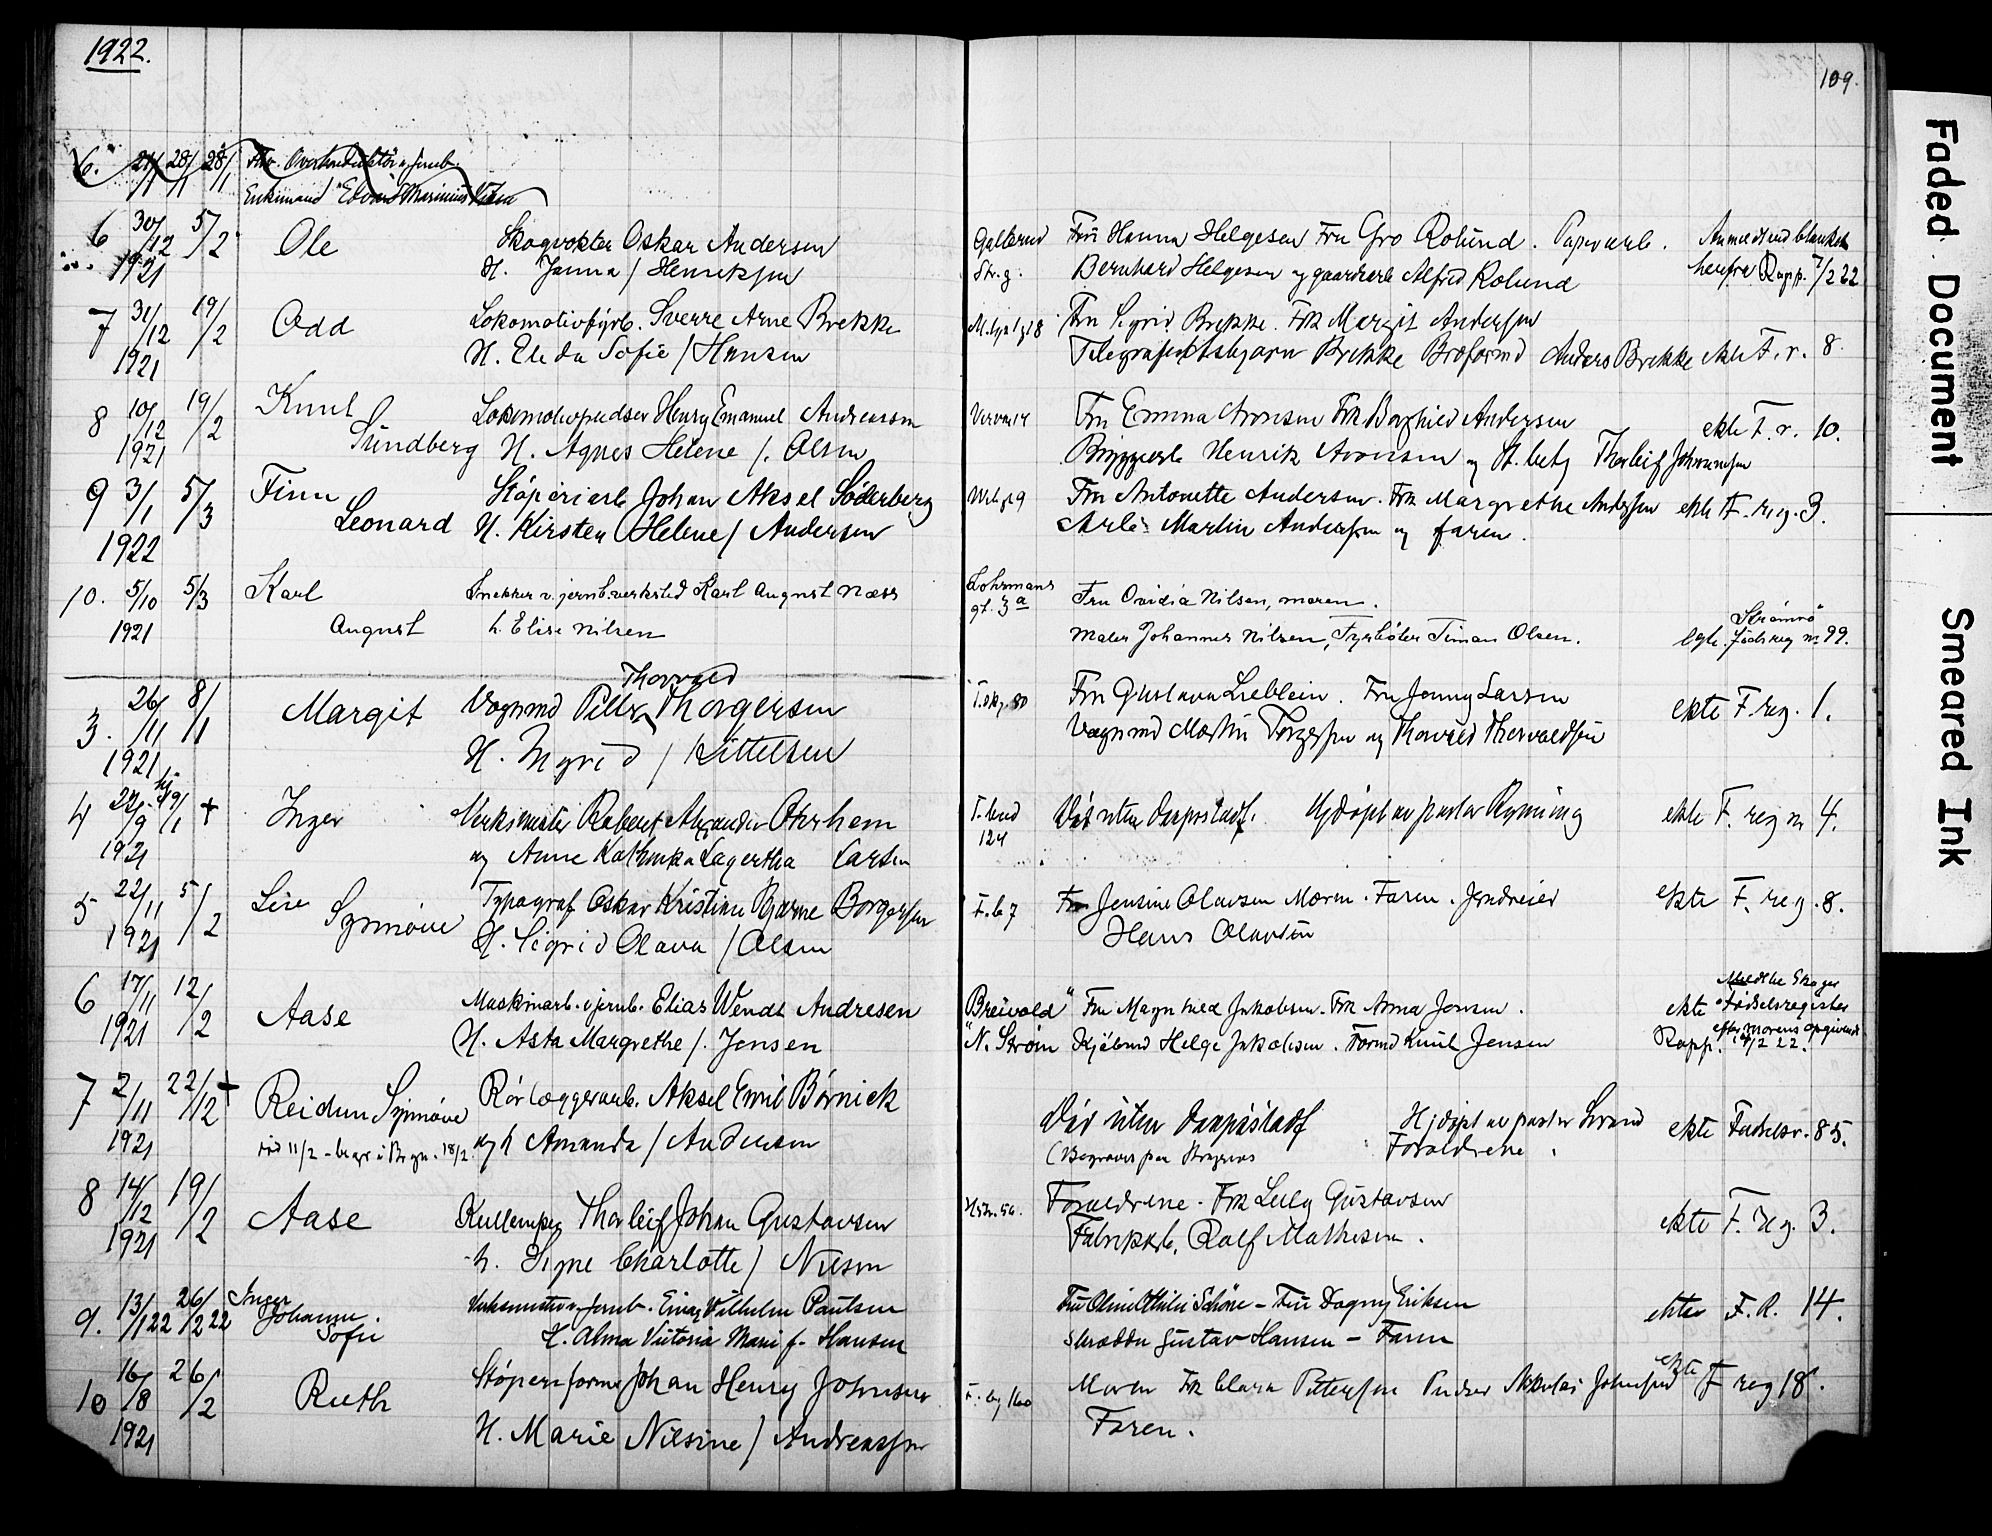 1922.
109.
6. 21/1 28/1 28/1
Enkemand Edvard Marinius
6 30/12 1921 5/2 Ole Skogvokter Oskar Andersen Galterud Fru Hanna Helgesen Fru Gro Rolund. Papirarb. Anmeldt ved blanket
H. Janna / Henriksen Str.g. Bernhard Helgesen og gaardarb Alfred Rolund herfra Rapp. 7/2 22
7 31/12 1921 19/2 Odd Lokomotivfyrb. Sverre Arne Brekke Fru Sigrid Brekke. Frk Margit Andersen
H. Elida Sofie / Hansen Telegrafist Asbjørn Brekke Broformd Anders Brekke ekte F. r. 8.
8 10/12 1921 19/2 Knut Lokomotivpudser Henry Emanuel Andreassen Fru Emma Aronsen Frk Borghild Andersen ekte F. r. 10.
Sundberg H. Agnes Helene /. Olsen Bryggearb Henrik Aronsen og St. betj Thorleif Johannesen
9 3/1 1922 5/3 Finn Støperiarb Johan Aksel Söderberg Fru Antonette Andersen. Frk Margrethe Andersen ekte F. reg. 3.
Leonard H. Kirsten Helene / Andersen Arb. Martin Andersen og faren.
10. 5/10 1921 5/3 Karl Snekker v. jernb.verksted Karl August Næss Lohrmans gt. 3a Fru Ovidia Nilsen, moren.
August h. Elise Nilsen Maler Johannes Nilsen, Fyrbøter Timan Olsen. egte. Strømsø fødsreg nr 99.
Thorvald
3. 26/11 1921 8/1 Margit Vognmd Peder Thorgersen T.skg. 80 Fru Gustava Lieblein. Fru Jenny Larsen ekte F. reg. 1.
H. Ingrid / Kittelsen Vognmd Martin Torgersen og Thorvald Thorvaldsen
4 22/9 1921 hj. 19/1 + Inger Verksmester Robert Alexander Ohrhem T. 124 Død uten daapsstadf. Hjdøpt av pastor Ryning ekte F. reg nr 4.
og Anne Kathinka Lagertha Larsen
5 22/11 1921 5/2 Lise Typograf Oskar Kristian Bjarne Borgersen F.b 7 Fru Jensine Olavsen Moren. Faren. ekte F. reg. 8.
Synnøve H. Sigrid Olava / Olsen Hans Olavsen
6 17/11 1921 12/2 Aase Maskinarb. v jernb. Elias Wendt Andresen "Breivold" Fru Magnhild Jakobsen. Frk Anna Jensen. ekte Meldt til Skoger Fødselsregister
H. Asta Margrethe /. Jensen "N. Strøm Kjøbmd Helge Jakobsen. Formd Knut Jensen efter morens opgivende Rapp. 2 22.
7 2/11 1921 22/12 + Reidun Synnøve Rørlæggerarb. Aksel Emil Børnick Død uten daapsstadf Hjdøpt av pastor Strand ekte Fødselsr. 85.
død 11/2 - begr i Brgn. 18/2. og h Amanda / Andersen (Begravet paa Bragernes Forældrene.
8 14/12 1921 19/2 Aase Kullemper Thorleif Johan Gustavsen Forældrene. Frk Lilly Gustavsen ekte F. reg. 3.
h. Signe Charlotte / Nilsen Fabrikarb. Rolf Mathisen.
9. 13/1 22 26/2 22 Inger Johanne Sofie Verksmester v Jernb. Einar Vilhelm Paulsen Fru Oline Othilie Schöne - Fru Dagny Eriksen ekte F. R. 14.
H. Alma Victoria Marie f. Hansen Skrædder Gustav Hansen - Faren
10 16/8 1921 26/2 Ruth Støperiformer Johan Henry Johnsen Moren Frk Clara Pettersen Pudser Nikolai Johnsen ekte F reg 18.
H. Marie Nilsine / Andreassen Faren.
Faded Document
Smeared Ink